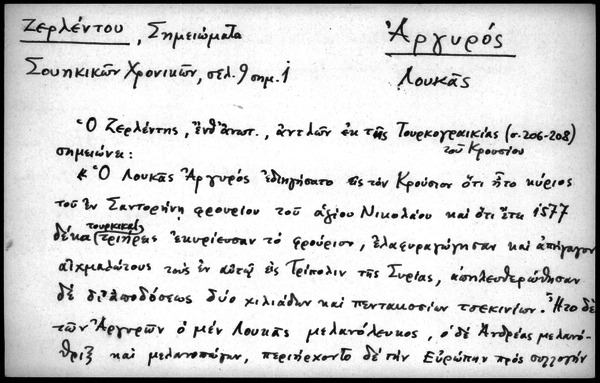 Ζερλέντου, Σημειώματα
Ἀργυρός
Σουηκικῶν Χρονικῶν, σελ. 9 σημ. 1
Λουκᾶς
Ὁ Ζερλέντης, ἔνθ' ἀνωτ., ἀντλῶν ἐκ τῆς Τουρκογραικίας (σ. 206-208)
τοῦ Κρουσίου
σημειώνει:
« Ὁ Λουκᾶς Ἀργυρός ἐδιηγήσατο εἰς τόν Κρούσιον ὅτι ἦτο κύριος
τοῦ ἐν Σαντορήνῃ φρουρίου τοῦ ἁγίου Νικολάου καί ὅτι ἔτει 1577
τουρκικαί
δέκα τριήρεις ἐκυρίευσαν τό φρούριον, ἐλαφυραγώγησαν καί ἀπήγαγον
αἰχμαλώτους τούς ἐν αὐτῷ εἰς Τρίπολιν τῆς Συρίας, ἀπηλευθερώθησαν
δέ δι' ἀποδόσεως δύο χιλιάδων καί πεντακοσίων τσεκινίων. Ἦτο δέ
τῶν Ἀργυρῶν ὁ μέν Λουκᾶς μελανόλευκος, ὁ δέ Ἀνδρέας μελανό-
θριξ καί μελανοπώγων, περιήρχοντο δέ τήν Εὐρώπην πρός συλλογήν